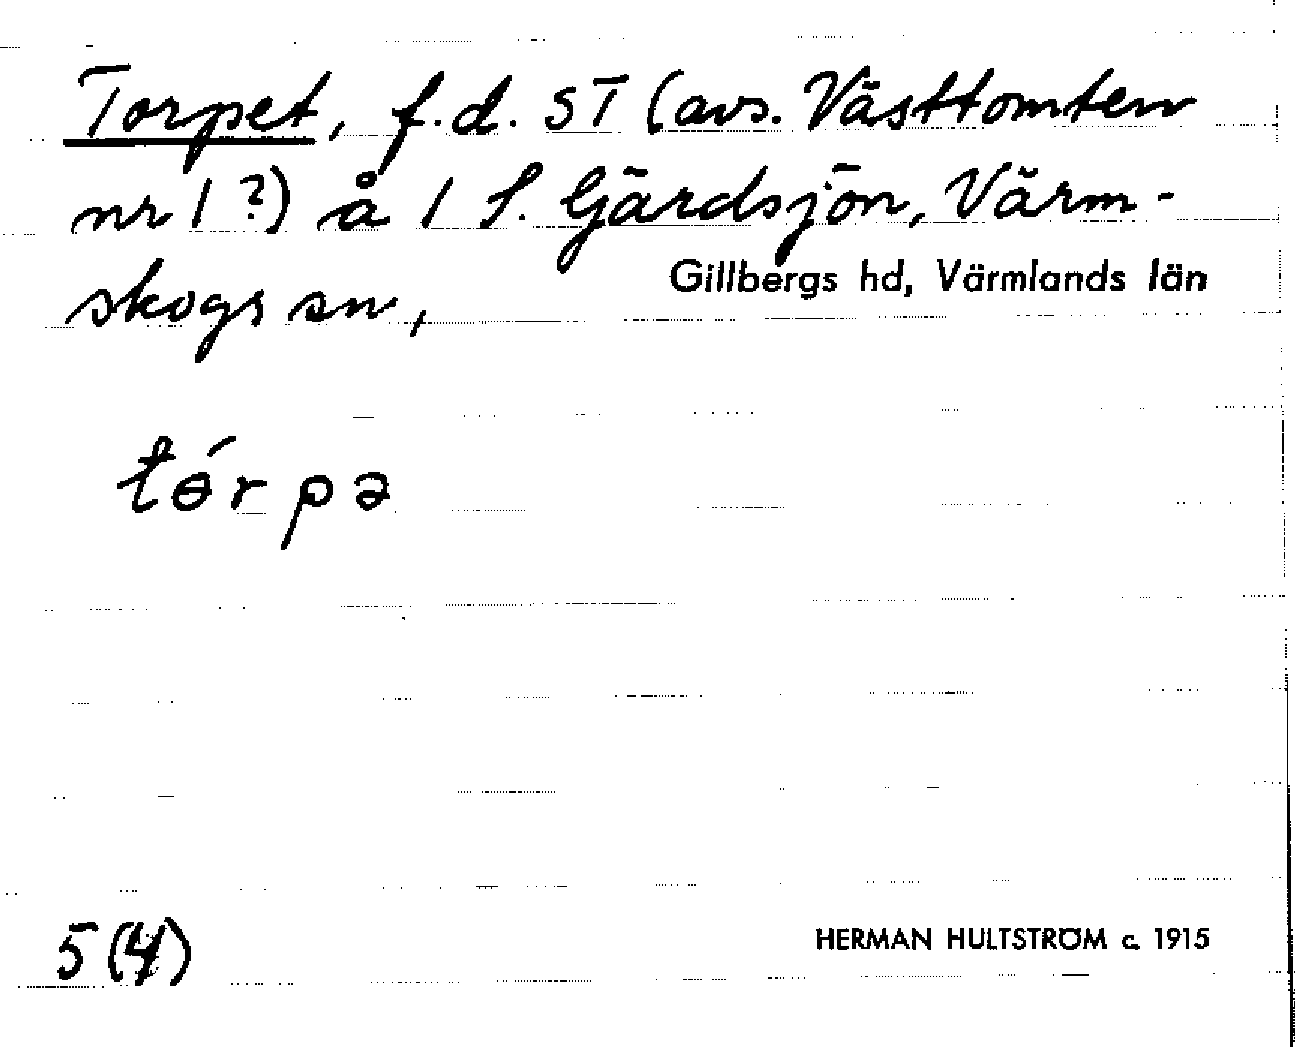 Torpet, f.d. ST (avs. Västtomten
nr 1 ?) å 1 S. Gärdsjön, Värm-
skogs sn, Gillbergs hd, Värmlands län
tɵ́rpə
5 (4) HERMAN HULTSTRÖM c. 1915